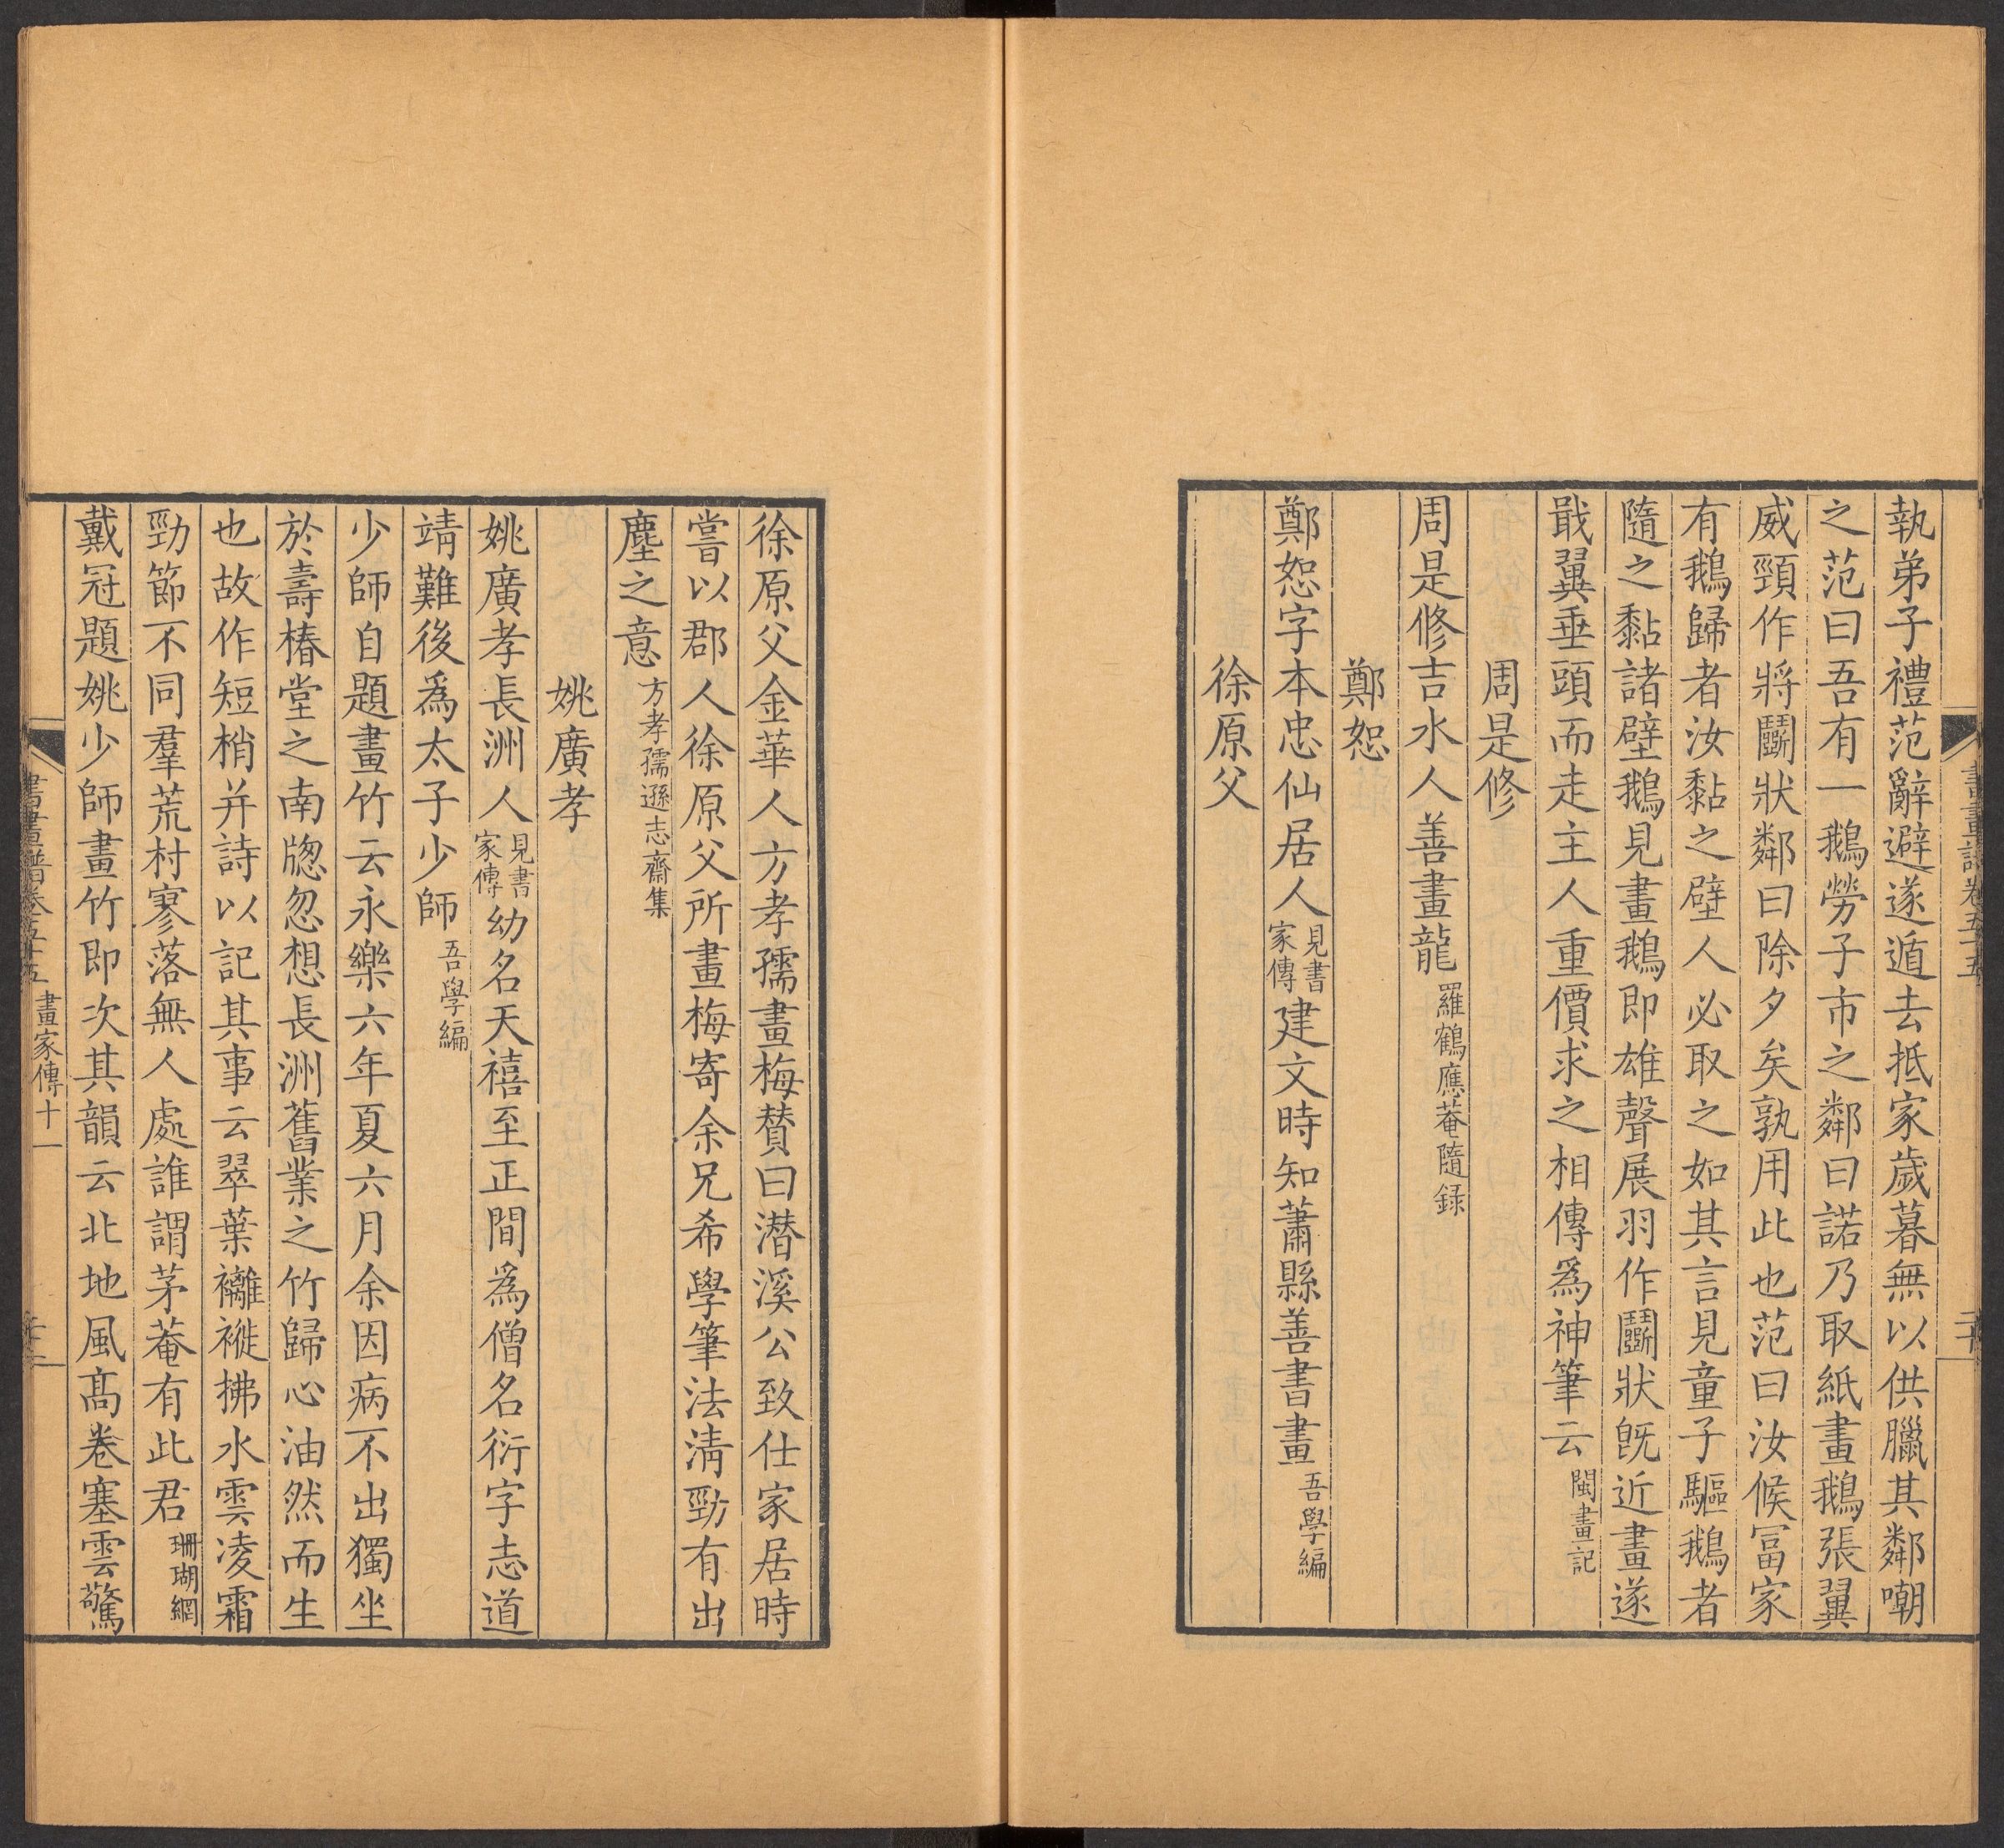 執弟子禮范辭避遂遁去抵家歲暮無以供臘其鄰嘲
之范曰吾有一鵝勞子市之鄰曰諾乃取紙畫鵝張翼
威頸作將鬬狀鄰曰除夕矣孰用此也范曰汝候冨家
有鵝歸者汝黏之壁人必取之如其言見童子驅鵝者
隨之黏諸壁鵝見畫鵝即雄聲展羽作鬬狀旣近畫遂
戢翼垂頭而走主人重價求之相傳爲神筆云閩畫記
周是修
周是修吉水人善畫龍羅鶴應菴隨録
鄭恕
鄭恕字本忠仙居人見書家傳建文時知蕭縣善書畫吾學編
徐原父
徐原父金華人方孝孺畫梅賛曰潛溪公致仕家居時
嘗以郡人徐原父所畫梅寄余兄希學筆法淸勁有出
塵之意方孝孺遜志齋集
姚廣孝
姚廣孝長洲人見書家傳幼名天禧至正間爲僧名衍字志道
靖難後爲太子少師吾學編
少師自題畫竹云永樂六年夏六月余因病不出獨坐
於壽椿堂之南牕忽想長洲舊業之竹歸心油然而生
也故作短梢并詩以記其事云翠葉褵褷拂水雲凌霜
勁節不同羣荒村寥落無人處誰謂茅菴有此君珊瑚網
戴冠題姚少師畫竹即次其韻云北地風髙卷塞雲驚
書畫譜卷五十五 畫家傳十一